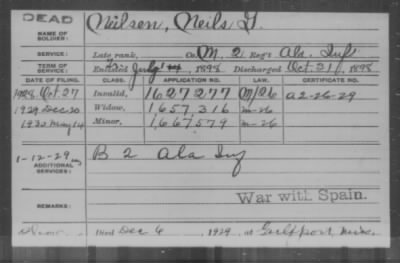 DEAD
NAME OF SOLDIER: Neilsen, Neils G.
SERVICE: Late rank, Co. M, 2 Reg't Ala. Inf
TERM OF SERVICE: Enlisted July 1898, Discharged Oct. 31, 1898
DATE OF FILING. CLASS. APPLICATION NO. LAW. CERTIFICATE NO.
1928 Oct 27 Invalid, 1627277 M/26 a2-26-29
1929 Dec 20 Widow, 1,657,316 m-26
1930 May 14 Minor, 1,667,579 m-26
1-12-29
ADDITIONAL SERVICES: B 2 Ala Inf
War with Spain.
REMARKS:
Died Dec 6 1929, at Gulfport, Miss.